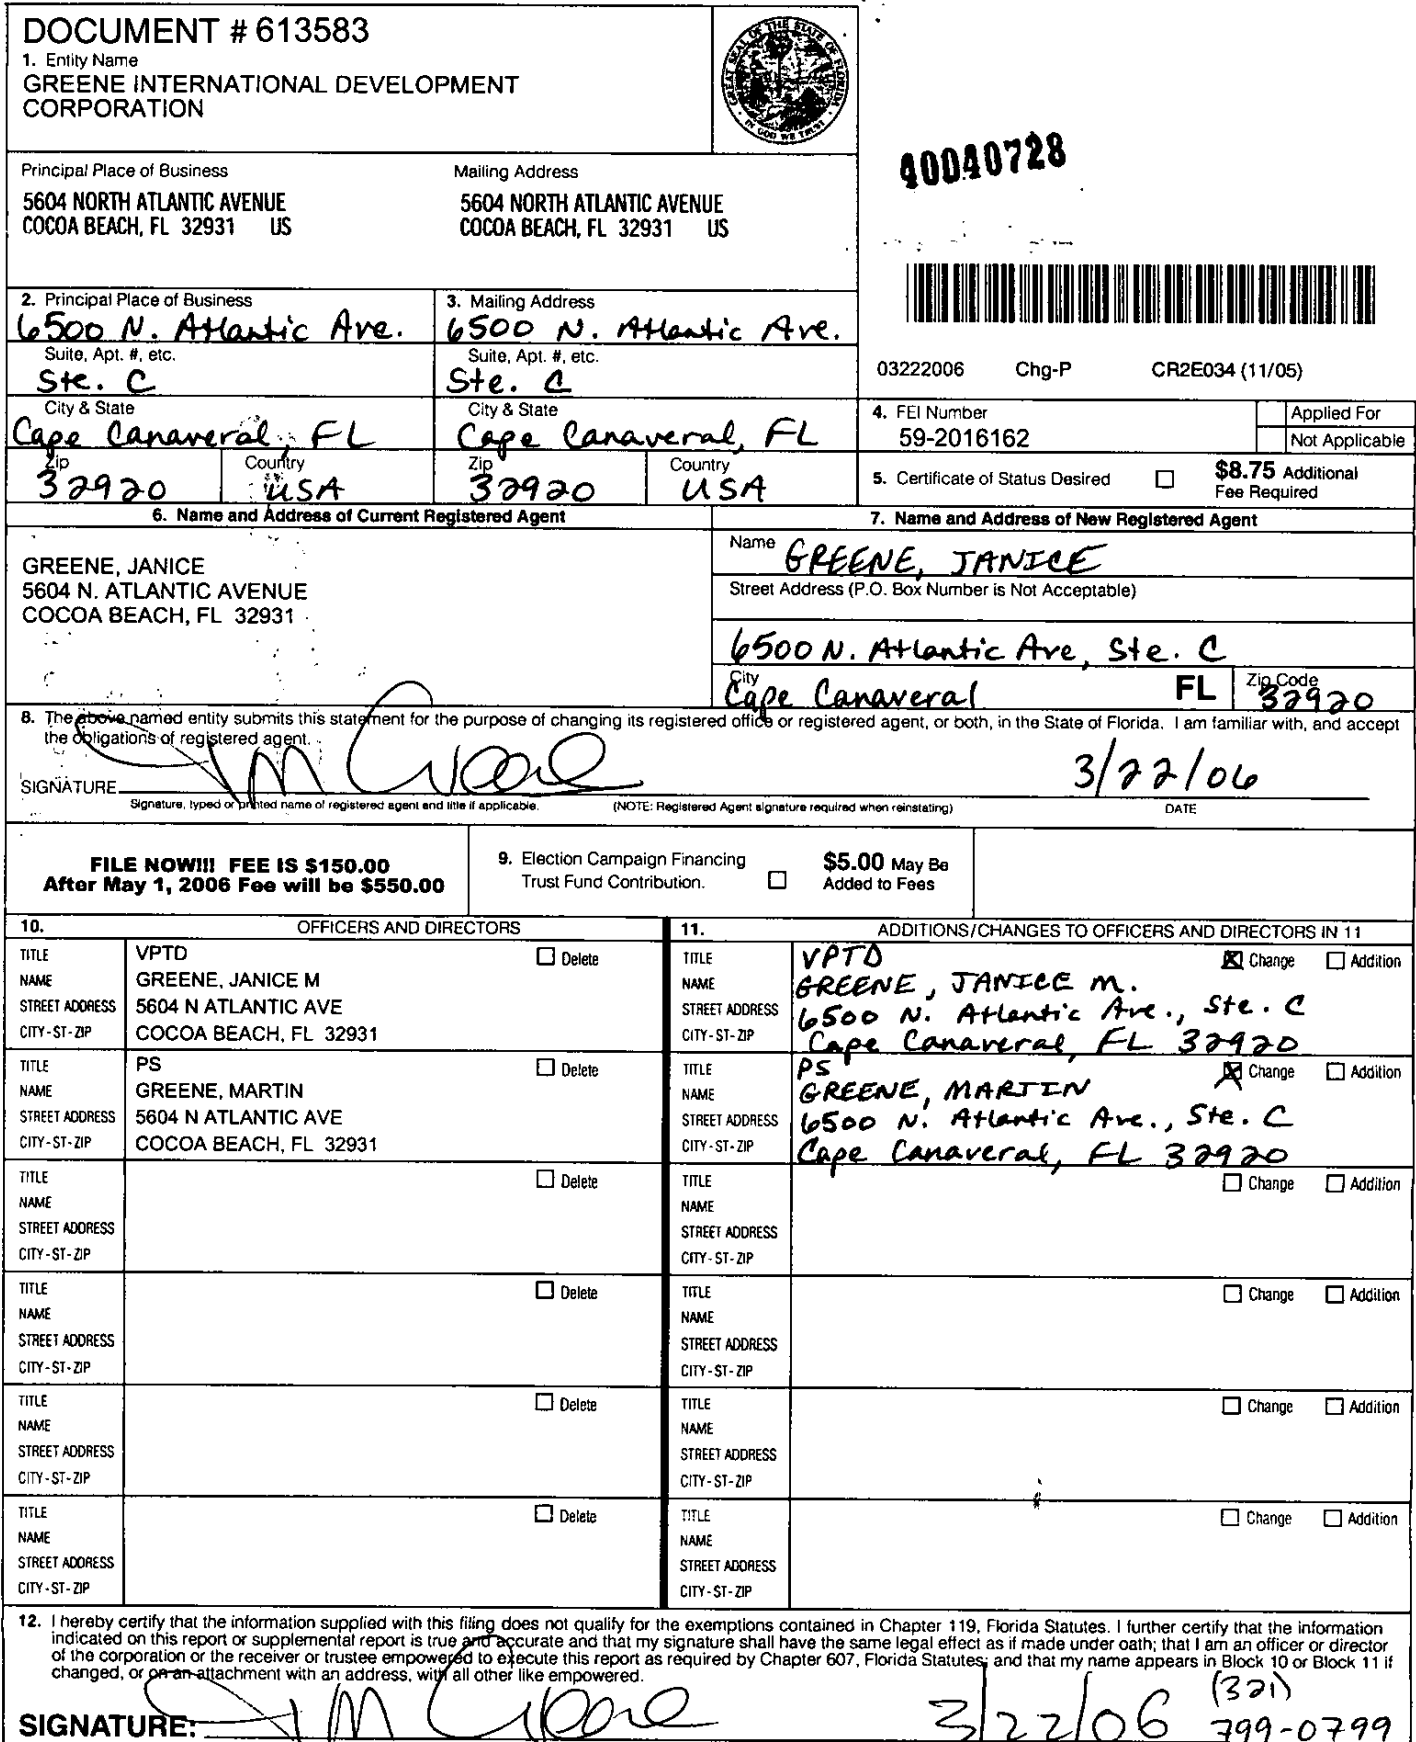 DOCUMENT # 613583
1. Entity Name
GREENE INTERNATIONAL DEVELOPMENT
CORPORATION
GREAT SEAL OF THE STATE OF FLORIDA
IN GOD WE TRUST
40040728
Principal Place of Business
5604 NORTH ATLANTIC AVENUE
COCOA BEACH, FL 32931 US
Mailing Address
5604 NORTH ATLANTIC AVENUE
COCOA BEACH, FL 32931 US
2. Principal Place of Business
6500 N. Atlantic Ave.
Suite, Apt. #, etc.
Ste. C
City & State
Cape Canaveral, FL
Zip
32920
Country
USA
3. Mailing Address
6500 N. Atlantic Ave.
Suite, Apt. #, etc.
Ste. C
City & State
Cape Canaveral, FL
Zip
32920
Country
USA
03222006 Chg-P CR2E034 (11/05)
4. FEI Number
59-2016162
Applied For
Not Applicable
5. Certificate of Status Desired
$8.75 Additional
Fee Required
6. Name and Address of Current Registered Agent
GREENE, JANICE
5604 N. ATLANTIC AVENUE
COCOA BEACH, FL 32931
7. Name and Address of New Registered Agent
Name GREENE, JANICE
Street Address (P.O. Box Number is Not Acceptable)
6500 N. Atlantic Ave, Ste. C
City
Cape Canaveral FL
Zip Code
32920
8. The above named entity submits this statement for the purpose of changing its registered office or registered agent, or both, in the State of Florida. I am familiar with, and accept
the obligations of registered agent.
SIGNATURE JM Greene 3/22/06
Signature, typed or printed name of registered agent and title if applicable. (NOTE: Registered Agent signature required when reinstating) DATE
FILE NOW!!! FEE IS $150.00
After May 1, 2006 Fee will be $550.00
9. Election Campaign Financing
Trust Fund Contribution.
$5.00 May Be
Added to Fees
10. OFFICERS AND DIRECTORS
TITLE VPTD Delete
NAME GREENE, JANICE M
STREET ADDRESS 5604 N ATLANTIC AVE
CITY-ST-ZIP COCOA BEACH, FL 32931
TITLE PS Delete
NAME GREENE, MARTIN
STREET ADDRESS 5604 N ATLANTIC AVE
CITY-ST-ZIP COCOA BEACH, FL 32931
TITLE Delete
NAME
STREET ADDRESS
CITY-ST-ZIP
TITLE Delete
NAME
STREET ADDRESS
CITY-ST-ZIP
TITLE Delete
NAME
STREET ADDRESS
CITY-ST-ZIP
TITLE Delete
NAME
STREET ADDRESS
CITY-ST-ZIP
11. ADDITIONS/CHANGES TO OFFICERS AND DIRECTORS IN 11
TITLE VPTD Change Addition
NAME GREENE, JANICE M.
STREET ADDRESS 6500 N. Atlantic Ave., Ste. C
CITY-ST-ZIP Cape Canaveral, FL 32920
TITLE PS Change Addition
NAME GREENE, MARTIN
STREET ADDRESS 6500 N. Atlantic Ave., Ste. C
CITY-ST-ZIP Cape Canaveral, FL 32920
TITLE Change Addition
NAME
STREET ADDRESS
CITY-ST-ZIP
TITLE Change Addition
NAME
STREET ADDRESS
CITY-ST-ZIP
TITLE Change Addition
NAME
STREET ADDRESS
CITY-ST-ZIP
TITLE Change Addition
NAME
STREET ADDRESS
CITY-ST-ZIP
12. I hereby certify that the information supplied with this filing does not qualify for the exemptions contained in Chapter 119, Florida Statutes. I further certify that the information
indicated on this report or supplemental report is true and accurate and that my signature shall have the same legal effect as if made under oath; that I am an officer or director
of the corporation or the receiver or trustee empowered to execute this report as required by Chapter 607, Florida Statutes; and that my name appears in Block 10 or Block 11 if
changed, or on an attachment with an address, with all other like empowered.
SIGNATURE: JM Greene 3/22/06 (321)
799-0799